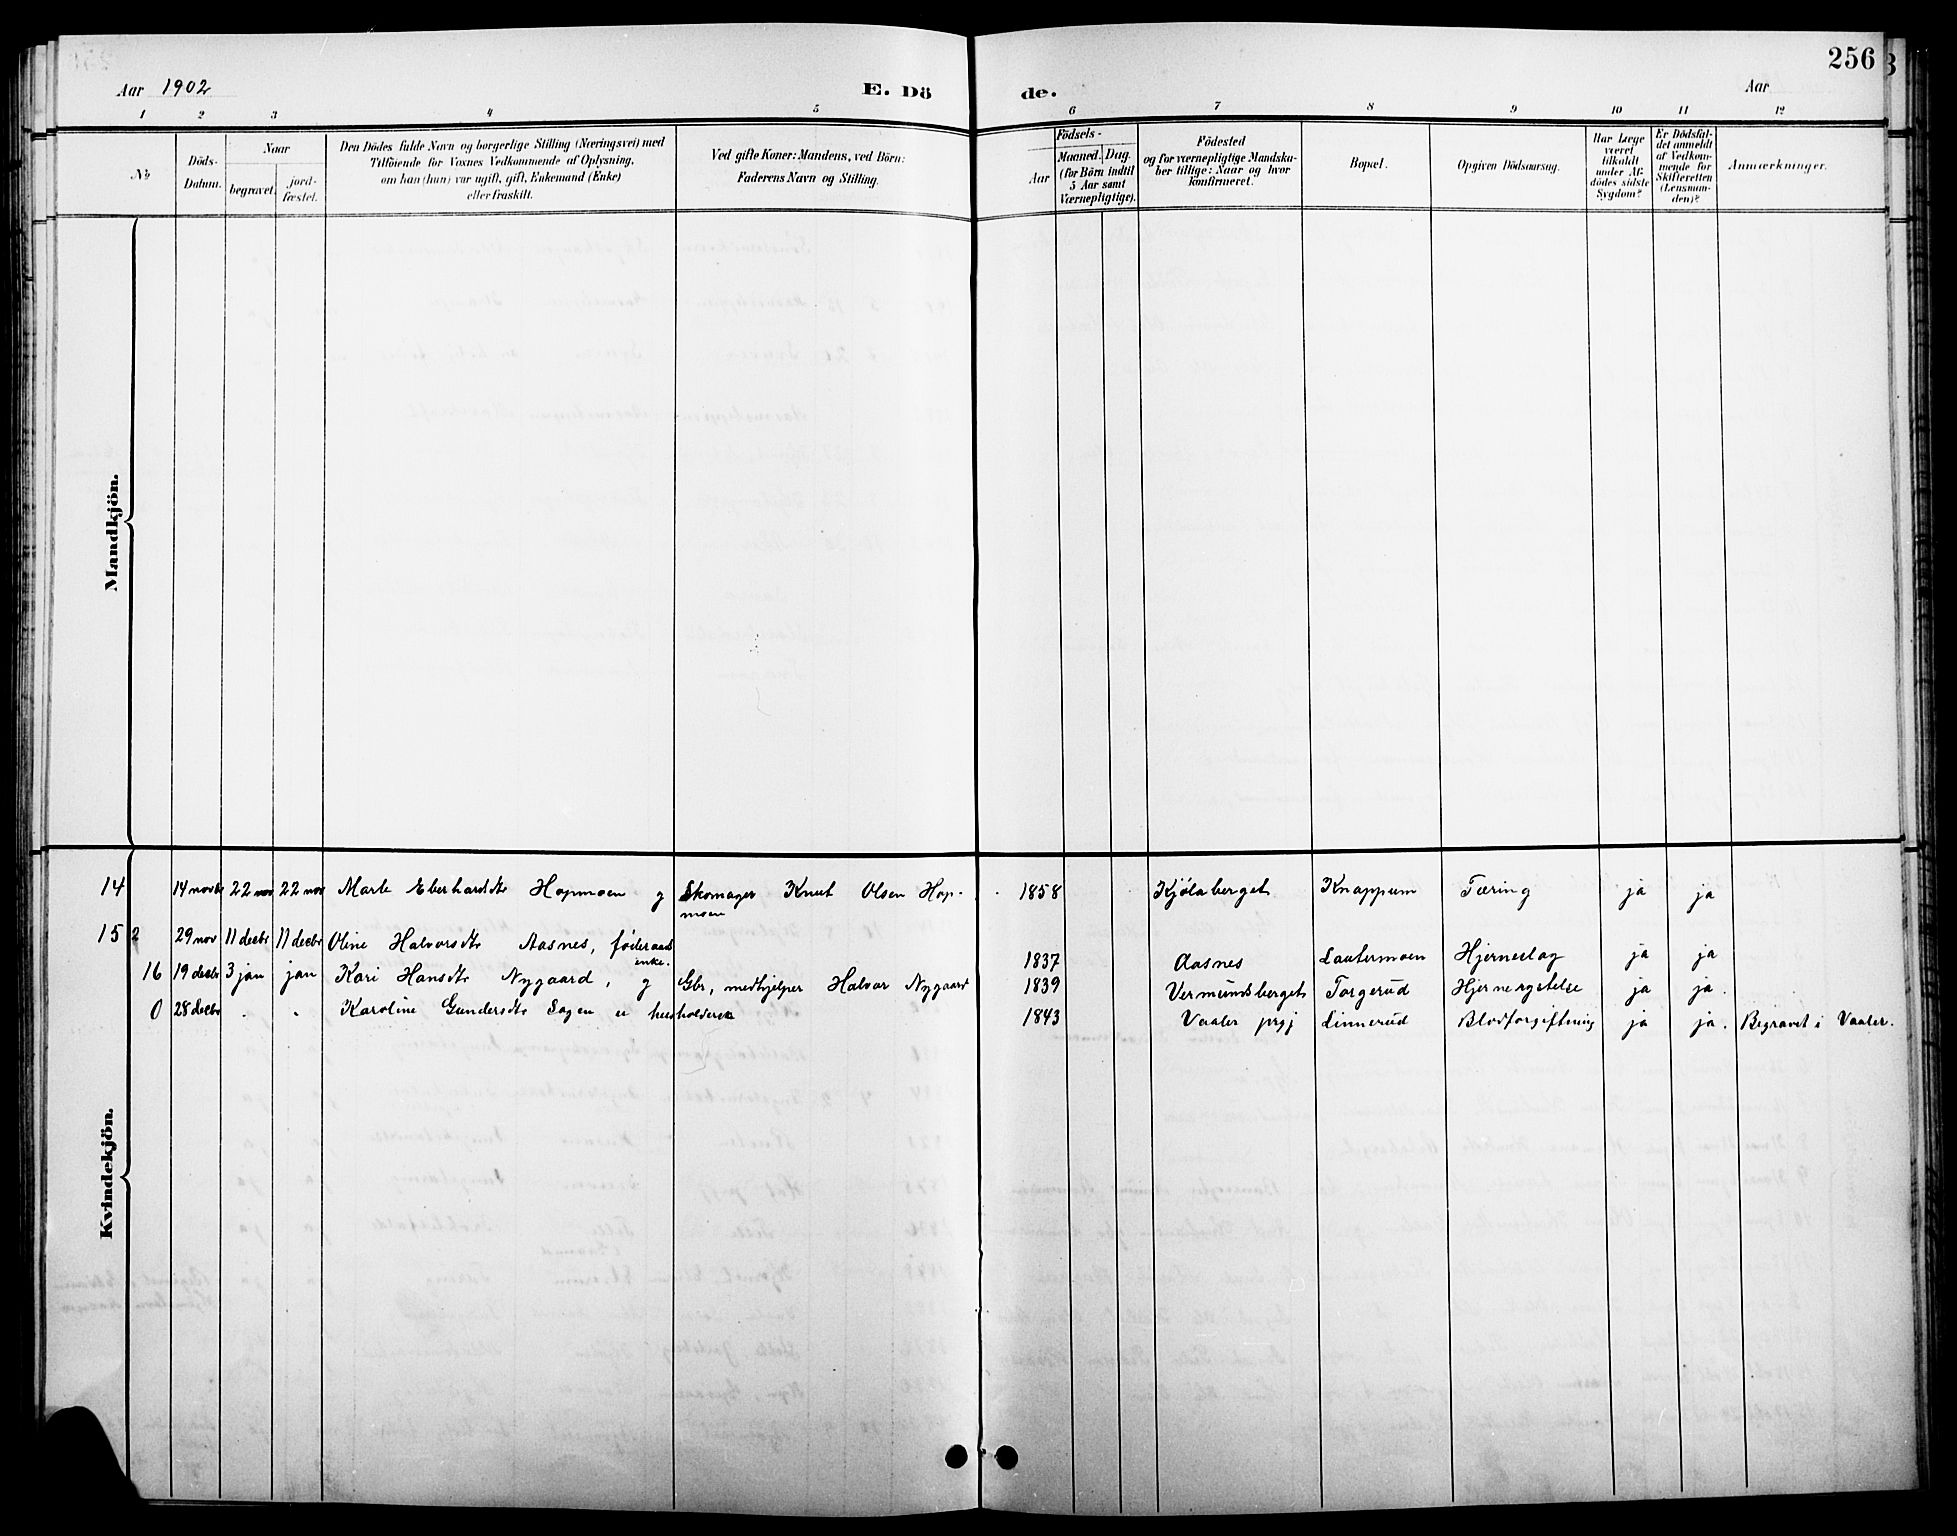 256
Aar 1902
E. Dö
de.
Aar
1 2 3 4 5 6 7 8 9 10 11 12
No
Döds-
Datum.
Naar
begravet.
jord-
fæstet.
Den Dödes fulde Navn og borgerlige Stilling (Næringsvei) med
Tilföiende for Voxnes Vedkommende af Oplysning,
om han (hun) var ugift, gift, Enkemand (Enke)
eller fraskilt.
Ved gifte Koner: Mandens, ved Börn:
Faderens Navn og Stilling.
Födsels-
Aar
Maaned. Dag.
(for Börn indtil
5 Aar samt
Værnepligtige).
Födested
og for værnepligtige Mandska-
ber tillige: Naar og hvor
konfirmeret.
Bopæl.
Opgiven Dödsaarsag.
Har Læge
været
tilkaldt
under Af-
dödes sidste
Sygdom?
Er Dödsfal-
det anmeldt
af Vedkom-
mende for
Skifteretten
(Lensman-
den)?
Anmærkninger.
Mandkjön.
Kvindekjön.
14 14 novbr 22 nov 22 nov Marte Eberhardtdtr Hopmoen g Skomager Knut Olsen Hop- 1858 Kjølaberget Knappum Tæring ja ja
moen
15 2 29 nov 11 decbr 11 decbr Oline Halvorsdtr Aasnes, føderaads 1837 Aasnes Lautermoen Hjerneslag ja ja
enke.
16 19 decbr 3 jan jan Kari Hansdtr Nygaard, g Gbr, medhjelper Halvor Nygaard 1839 Vermundsberget Torgerud Hjernerystelse ja ja.
0 28 decbr . " Karoline Gundersdtr Sagen e husholderske 1843 Vaaler prgj Linnerud Blodforgiftning ja ja. Begravet i Vaaler.